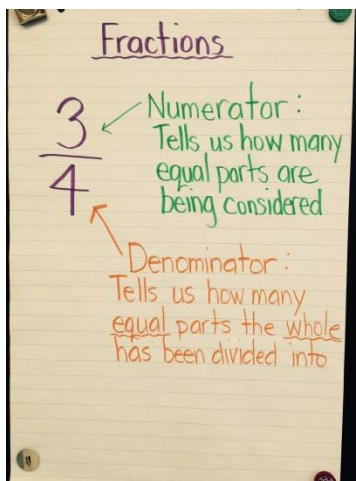 Fractions
3
4
Numerator:
Tells us how many
equal parts are
being considered
Denominator:
Tells us how many
equal parts the whole
has been divided into